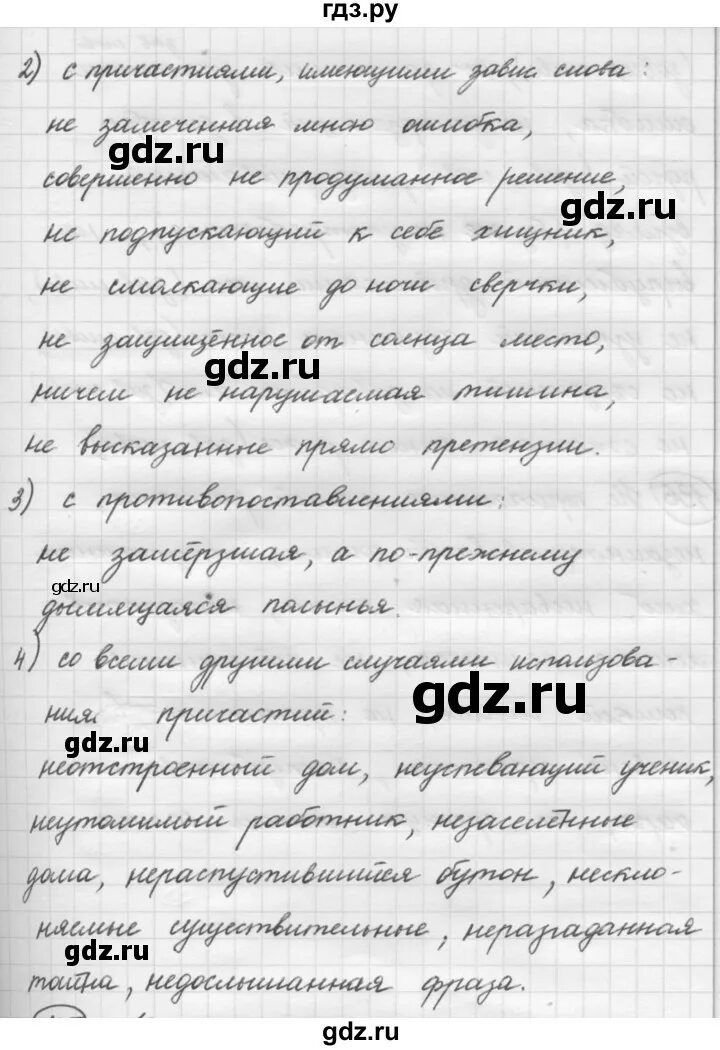 гдз.ру
2) с причастиями, имеющими завис. слова:
не замеченная мною ошибка,
gdz.ru
совершенно не продуманное решение,
gdz.ru
не подпускающий к себе хищник,
не смолкающие до ночи сверчки,
не защищённое от солнца место,
gdz.ru
ничем не нарушаемая тишина,
не высказанные прямо претензии.
3) с противопоставлениями:
не замёрзшая, а по-прежнему
gdz.ru
дымящаяся полынья.
4) со всеми другими случаями использова-
gdz.ru
ния причастий:
gdz.ru
неотстроенный дом, неуспевающий ученик,
неутомимый работник, незаселённые
дома, нераспустившийся бутон, нескло-
няемые существительные, неразгаданная
gdz.ru
тайна, недослышанная фраза.
gdz.ru